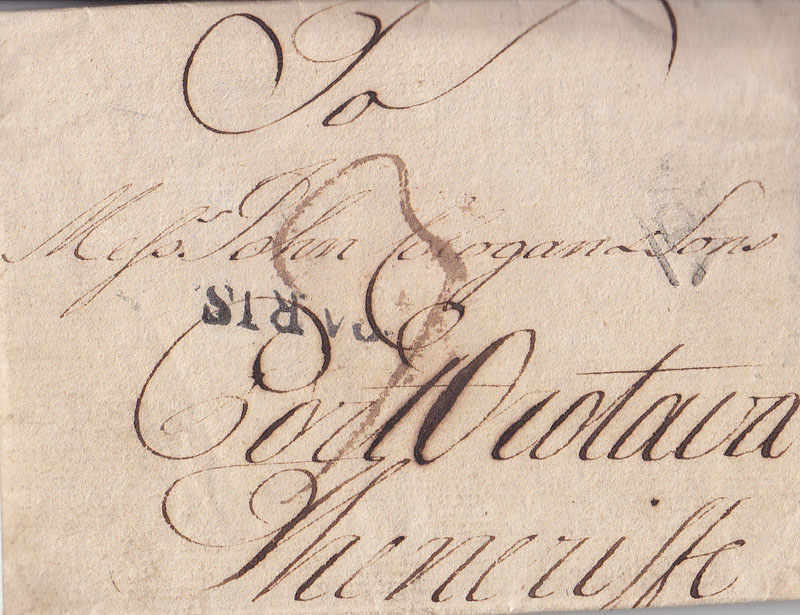 To
Messrs John Cologan & Sons
PARIS
Port Orotava
Theneriffe